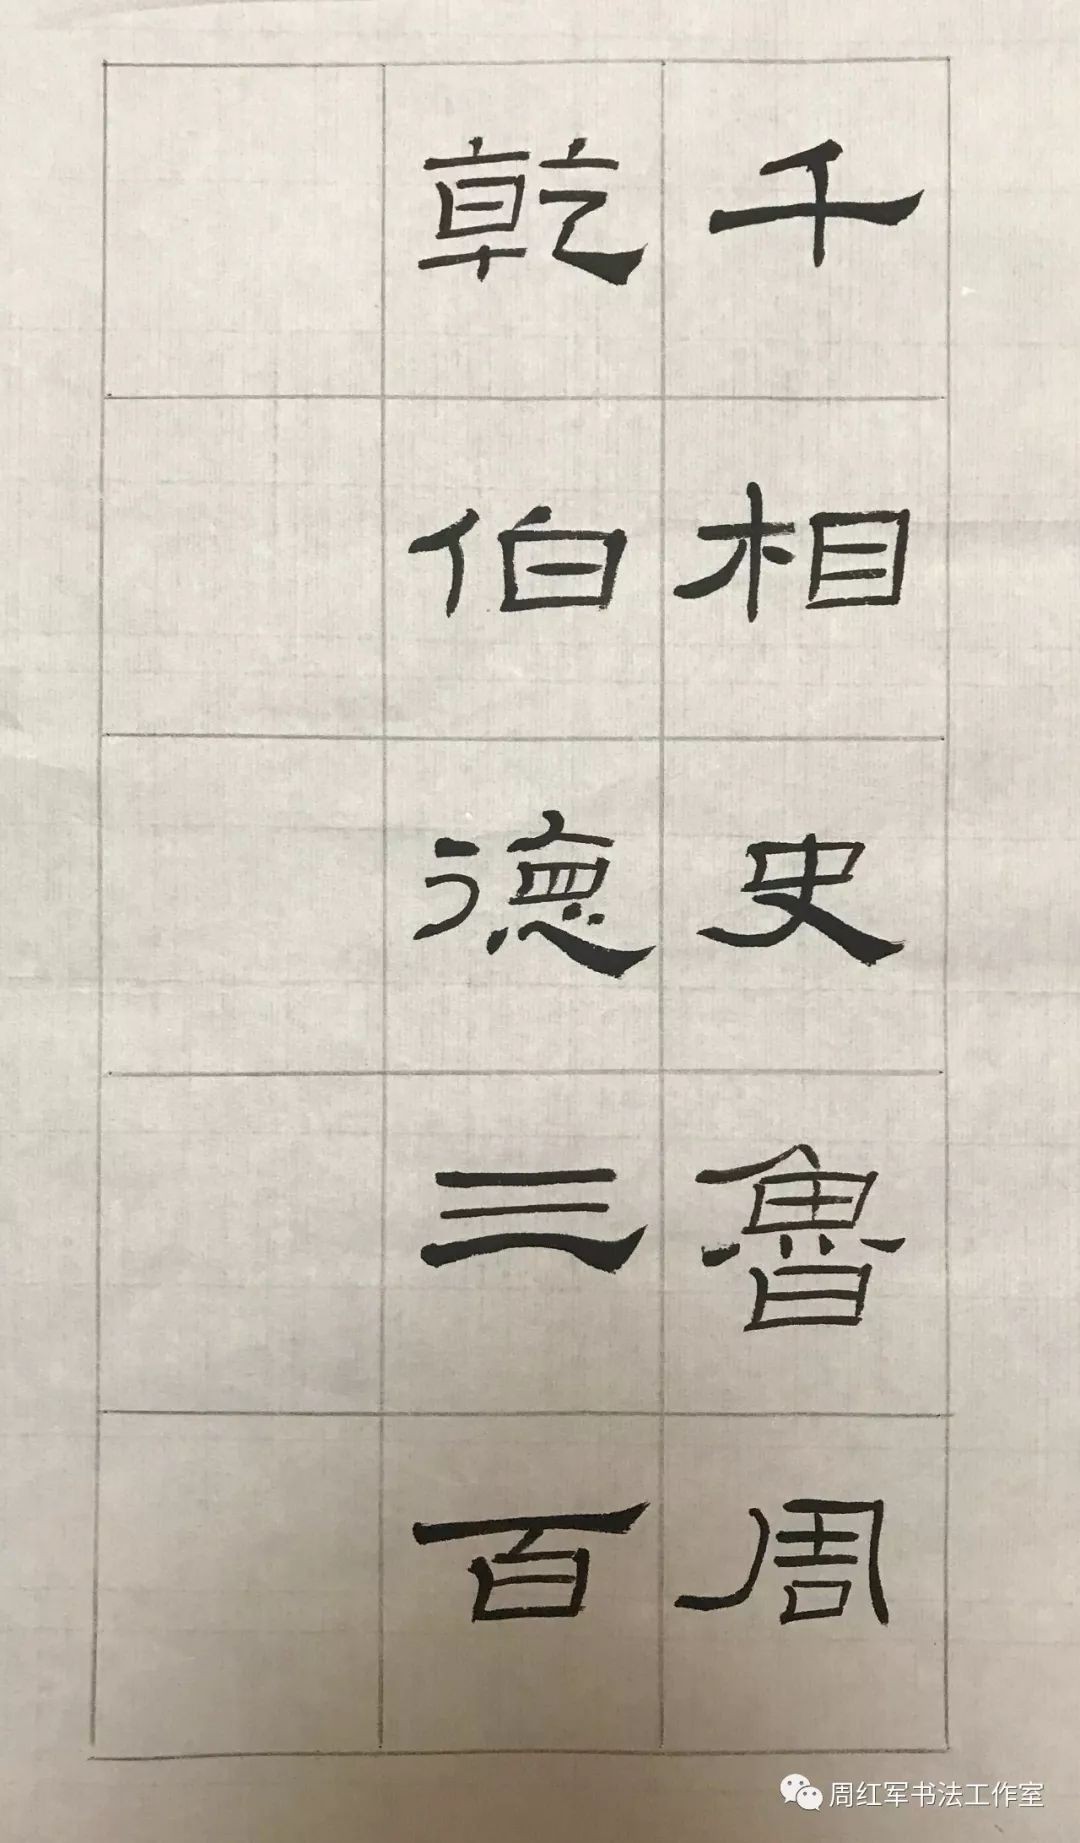 千相史魯周
乾伯德三百
周红军书法工作室